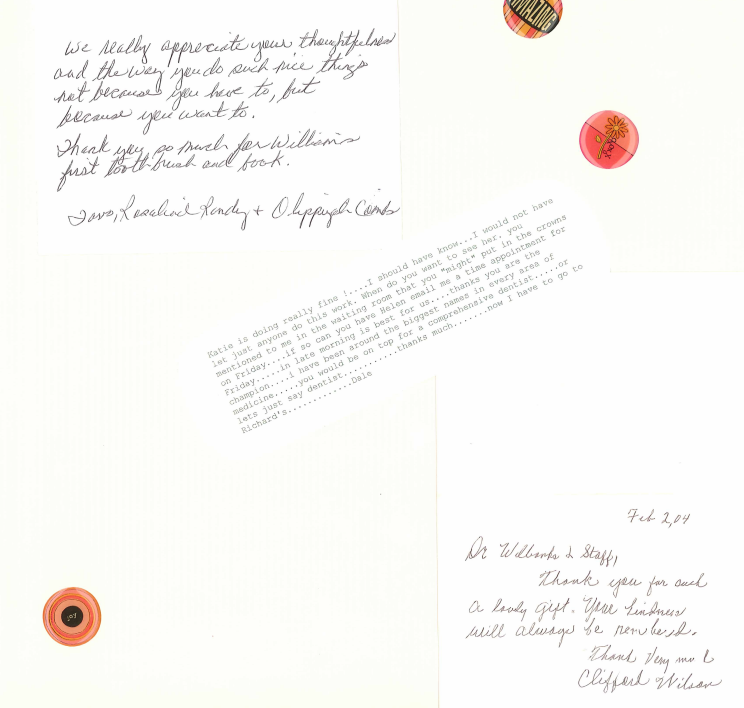 We really appreciate your thoughtfulness
and the way you do such nice things
not because you have to, but
because you want to.
Thank you so much for William's
first toothbrush and book.
Love, Rosalind Randy +
Katie is doing really fine !....I should have know...I would not have
let just anyone do this work. When do you want to see her. you
mentioned to me in the waiting room that you "might" put in the crowns
on Friday....if so can you have Helen email me a time appointment for
Friday.....in late morning is best for us....thanks you are the
champion....i have been around the biggest names in every area of
medicine.....you would be on top for a comprehensive dentist.....or
lets just say dentist...........thanks much.......now I have to go to
Richard's............Dale
joy
Feb 2, 04
Dr Wilbanks & Staff,
Thank you for such
a lovely gift. Your kindness
will always be rembered.
Thank Very
Clifford Wilson